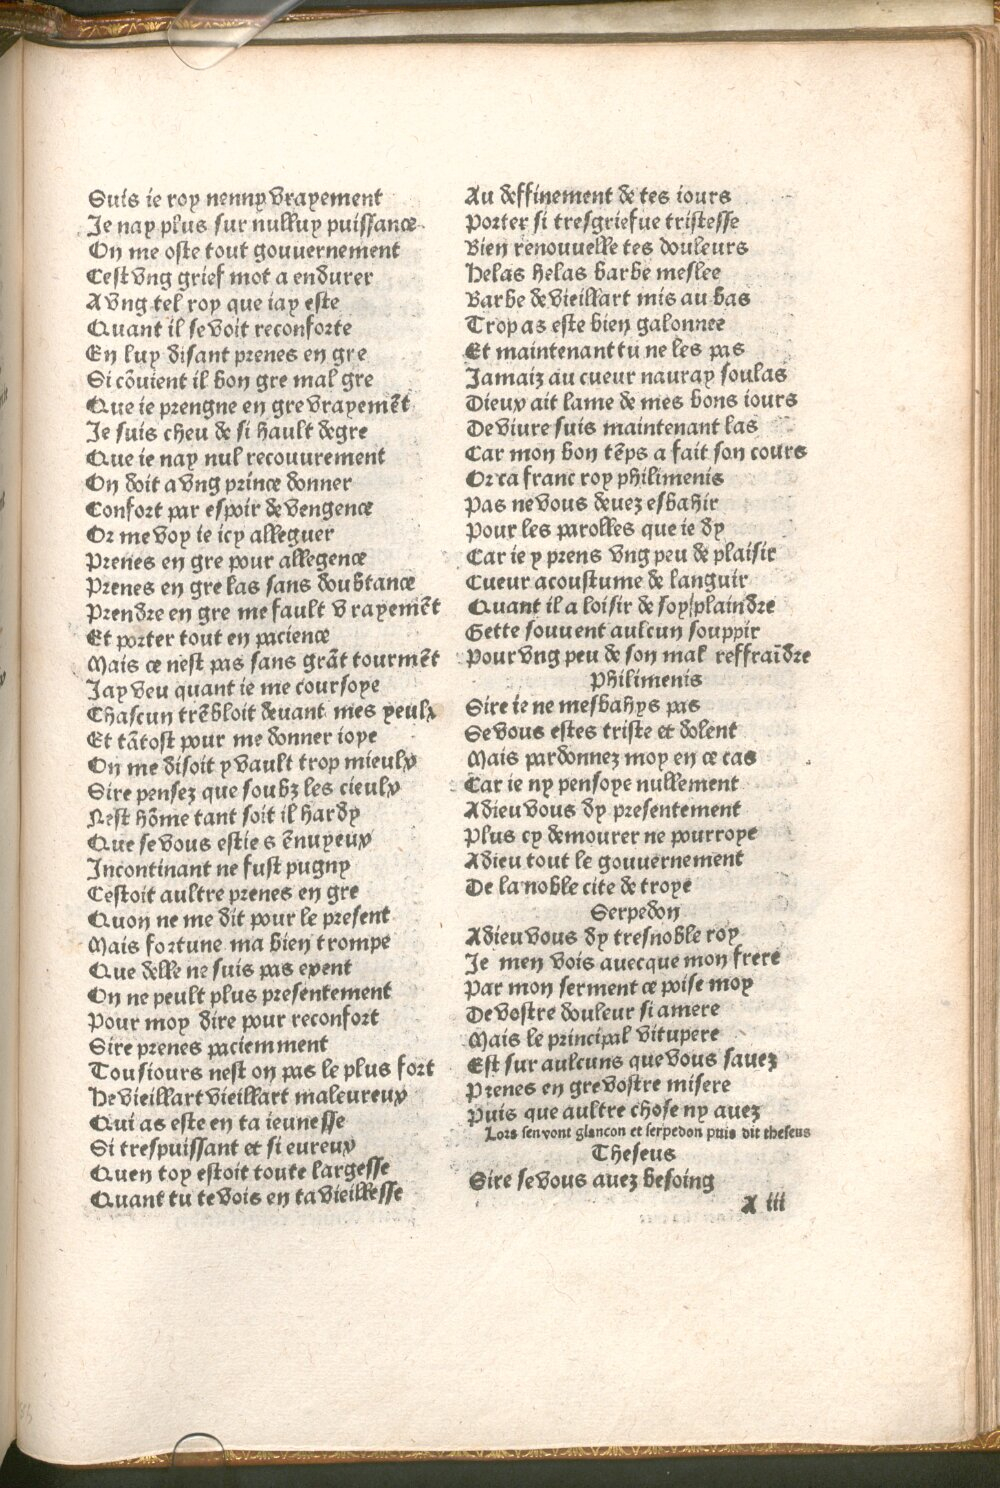 Suis ie roy nenny vrayement
Je nay plus sur nulluy puissance
On me oste tout gouvernement
Cest vng grief mot a endurer
A vng tel roy que iay este
Quant il se voit reconforte
En luy disant prenes en gre
Si cōuient il bon gre mal gre
Que ie prengne en gre vrayemēt
Je suis cheu de si hault degre
Que ie nay nul recouurement
On doit a vng prince donner
Confort par espoir de vengence
Or me voy ie icy alleguer
Prenes en gre pour allegence
Prenes en gre las sans doubtance
Prendre en gre me fault vrayemēt
Et porter tout en pacience
Mais ce nest pas sans grāt tourmēt
Jay veu quant ie me coursoye
Chascun trēbloit deuant mes yeulx
Et tātost pour me donner ioye
On me disoit y vault trop mieulx
Sire pensez que soubz les cieulx
Nest hōme tant soit il hardy
Que se vous esties ēnuyeux
Incontinant ne fust pugny
Cestoit aultre prenes en gre
Quon ne me dit pour le present
Mais fortune ma bien trompe
Que delle ne suis pas exent
On ne peult plus presentement
Pour moy dire pour reconfort
Sire prenes paciemment
Tousiours nest on pas le plus fort
He vieillart vieillart maleureux
Qui as este en ta ieunesse
Si trespuissant et si eureux
Quen toy estoit toute largesse
Quant tu te vois en ta vieillesse
Au deffinement de tes iours
Porter si tresgriefue tristesse
Bien renouuelle tes douleurs
Helas helas barbe meslee
Barbe de vieillart mis au bas
Trop as este bien galonnee
Et maintenant tu ne les pas
Jamaiz au cueur nauray soulas
Dieux ait lame de mes bons iours
De viure suis maintenant las
Car mon bon tēps a fait son cours
Or ca franc roy philimenis
Pas ne vous deuez esbahir
Pour les parolles que ie dy
Car ie y prens vng peu de plaisir
Cueur acoustume de languir
Quant il a loisir de soy plaindre
Gette souuent aulcun souppir
Pour vng peu de son mal reffraīdre
Philimenis
Sire ie ne mesbahys pas
Se vous estes triste et dolent
Mais pardonnez moy en ce cas
Car ie ny pensoye nullement
Adieu vous dy presentement
Plus cy demourer ne pourroye
Adieu tout le gouuernement
De la noble cite de troye
Serpedon
Adieu vous dy tresnoble roy
Je men vois auecque mon frere
Par mon serment ce poise moy
De vostre douleur si amere
Mais le principal vitupere
Est sur aulcuns que vous sauez
Prenes en gre vostre misere
Puis que aultre chose ny auez
Lors sen vont glancon et serpedon puis dit theseus
Theseus
Sire se vous auez besoing
A iii